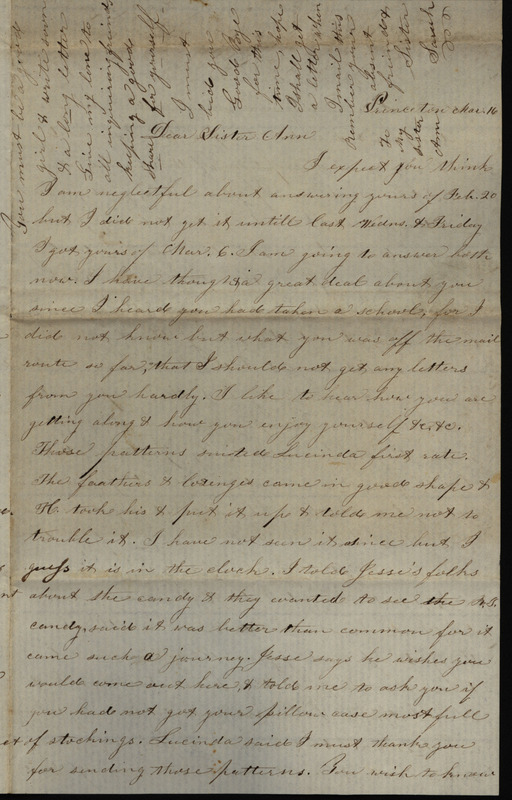 Princeton Mar. 16
Dear Sister Ann
I expect you think
I am neglectful about answering yours of Feb. 20
but I did not get it untill last Wedns. & Friday
I got yours of Mar. 6. I am going to answer both
now. I have thought a great deal about you
since I heard you had taken a school, for I
did not know but what you was off the mail
route so far, that I should not get any letters
from you hardly. I like to hear how you are
getting along & how you enjoy yourself &c. &c.
Those patterns suited Lucinda first rate.
The feathers & lozenges came in good shape &
H. took his & put it up & told me not to
trouble it. I have not seen it since but I
guess it is in the clock. I told Jesse's folks
about the candy & they wanted to see the N.S.
candy, said it was better than common for it
came such a journey. Jesse says he wishes you
would come out here & told me to ask you if
you had not got your pillow case most full
of stockings. Lucinda said I must thank you
for sending those patterns. You wish to know
You must be a good
girl & write soon
& a long letter
Give my love to
all inquiring friends
keeping a good
share for yourself.
I must
bid you
Good Bye
for this
time, hope
I shall get
a letter when
I mail this
Remember your
absent
friend &
Sister
Sarah
To
My
Sister
Ann